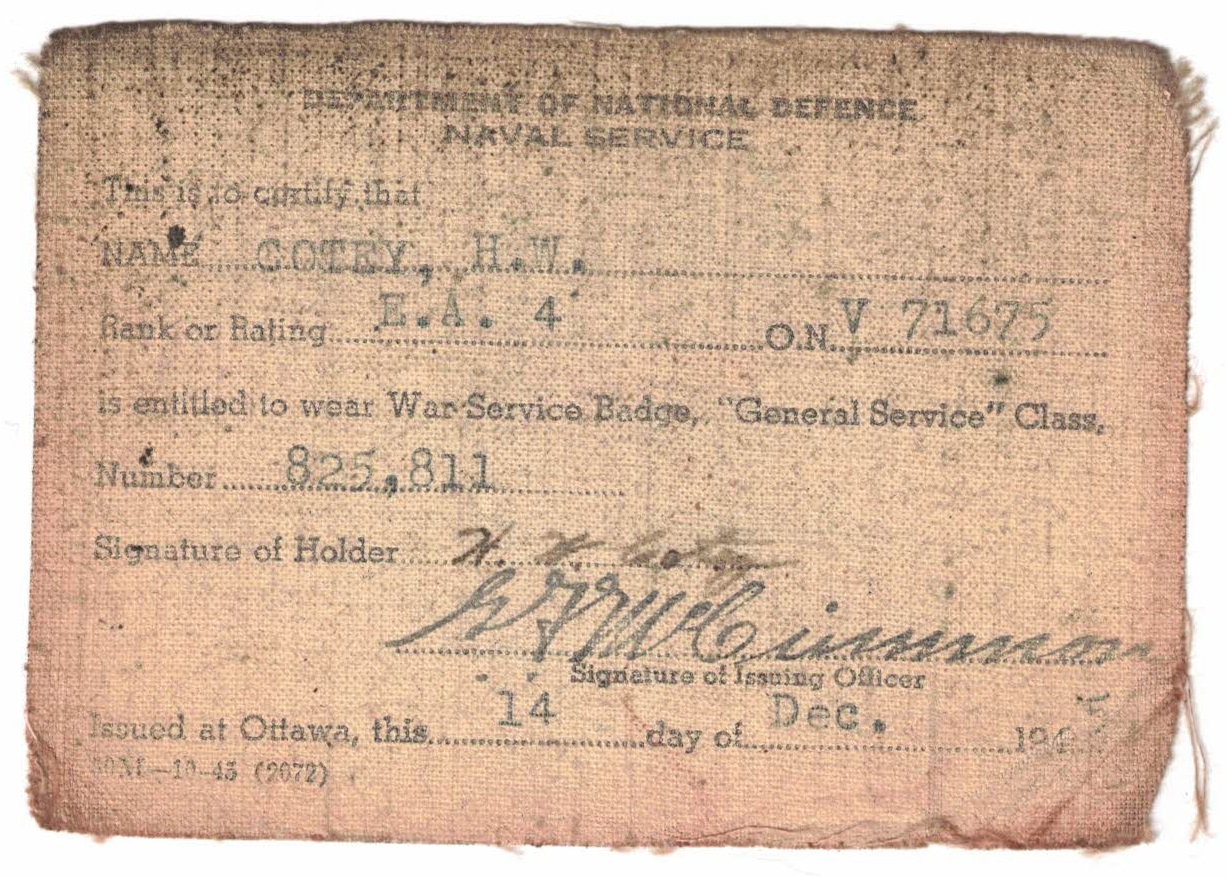 DEPARTMENT OF NATIONAL DEFENCE
NAVAL SERVICE
This is to certify that
NAME COTEY, H.W.
Rank or Rating E.A. 4 O.N. V 71675
is entitled to wear War Service Badge, "General Service" Class,
Number 825,811
Signature of Holder H. W. Cotey
Signature of Issuing Officer
Issued at Ottawa, this 14 day of Dec. 1945
10-45 (2072)